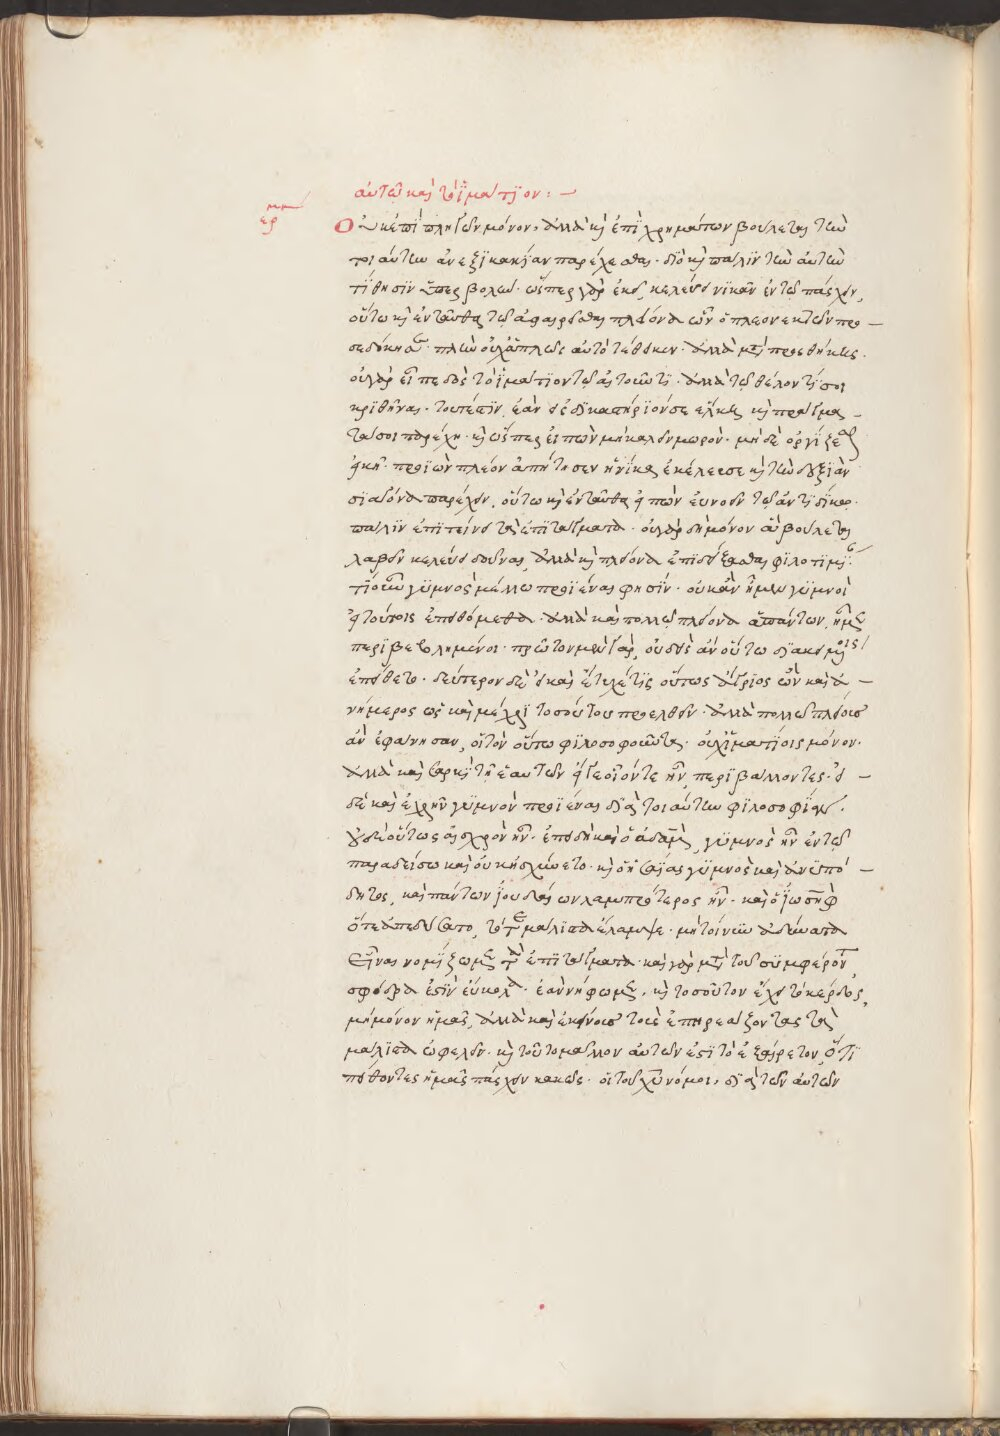 αὐτῶ καὶ τὸ ἱμάτιον :-
ερμη
Οὐκ ἐπὶ πληγῶν μόνον, ἀλλὰ καὶ ἐπὶ χρημάτων βούλεται τὴν
τοιαύτην ἀνεξικακίαν παρέχεσθαι· διὸ καὶ πάλιν τὴν αὐτὴν
τίθησιν ὑπερβολήν· ὥσπερ γὰρ ἐκεῖ κελεύει νικᾶν ἐν τῶ πάσχειν,
οὕτω καὶ ἐνταῦθα τῶ ἀφαιρεῖσθαι πλείονα ὧν ὁ πλεονεκτῶν προ-
σεδόκησε· πλὴν οὐχ ἁπλῶς αὐτὸ τέθεικεν· ἀλλὰ μετὰ προσθήκης·
οὐ γὰρ εἶπε δὸς τὸ ἱμάτιον τῶ αἰτοῦντι· ἀλλὰ τῶ θέλοντί σοι
κριθῆναι· τουτέστιν, ἐὰν εἰς δικαστήριόν σε ἕλκη καὶ πράγμα-
τά σοι παρέχη· καὶ ὥσπερ εἰπὼν μὴ καλεῖν μωρὸν· μὴ δὲ ὀργίζεσθαι
εἰκῆ· προϊὼν πλέον ἀπήτησεν ἡνίκα ἐκέλευσε καὶ τὴν δεξιὰν
σιαγόνα παρέχειν, οὕτω καὶ ἐνταῦθα εἰπὼν εὐνοεῖν τῶ ἀντιδίκω·
πάλιν ἐπιτείνει τὰ ἐπιτάγματα· οὐ γὰρ δὴ μόνον ἃ βούλεται
λαβεῖν κελεύει δοῦναι, ἀλλὰ καὶ πλείονα ἐπιδείξασθαι φιλοτιμίαν·
τί οὖν γυμνὸς μέλλω προϊέναι φησίν· οὐκ ἂν ἦμεν γυμνοὶ
εἰ τούτοις ἐπειθόμεθα· ἀλλὰ καὶ πολλῶ πλείονα ἁπάντων ἦμεν
περιβεβλημένοι· πρῶτον μὲν γὰρ, οὐδεὶς ἂν οὕτω διακειμένοις
ἐπέθετο· δεύτερον δὲ εἰ καὶ ἔτυχέ τις οὕτως ἄγριος ὢν καὶ ἀ-
νήμερος ὡς καὶ μέχρι τοσούτου προελθεῖν· ἀλλὰ πολλῶ πλείους
ἂν ἐφάνησαν, οἱ τὸν οὕτω φιλοσοφοῦντα· οὐχ ἱματίοις μόνον·
ἀλλὰ καὶ σαρκὶ τῆ ἑαυτῶν εἴ γε οἷόν τε ἦν, περιβάλλοντες· εἰ
δὲ καὶ ἐχρῆν γυμνὸν προϊέναι διὰ τοιαύτην φιλοσοφίαν,
οὐδὲ οὕτως αἰσχρὸν ἦν· ἐπειδὴ καὶ ὁ ἀδὰμ, γυμνὸς ἦν ἐν τῶ
παραδείσω καὶ οὐκ ἠσχύνετο· καὶ ὁ ἡσαΐας γυμνὸς καὶ ἀνυπό-
δητος, καὶ πάντων ἰουδαίων λαμπρότερος ἦν· καὶ ὁ ἰωσὴφ
ὅτε ἀπεδύσατο, τότε μάλιστα ἔλαμψε· μὴ τοίνυν ἀδύνατα
εἶναι νομίζωμεν τὰ ἐπιτάγματα· καὶ γὰρ μετὰ τοῦ συμφέροντος
σφόδρα ἐστὶν εὔκολα· ἐὰν νήφωμεν, καὶ τοσοῦτον ἔχει τὸ κέρδος,
μὴ μόνον ἡμᾶς, ἀλλὰ καὶ ἐκείνους τοὺς ἐπηρεάζοντας τὰ
μάλιστα ὠφελεῖν· καὶ τοῦτο μάλλον αὐτῶν ἐστὶ τὸ ἐξαίρετον, ὅτι
πείθοντες ἡμᾶς πάσχειν κακῶς· οἱ τοῦ χυ νόμοι, διὰ τῶν αὐτῶν